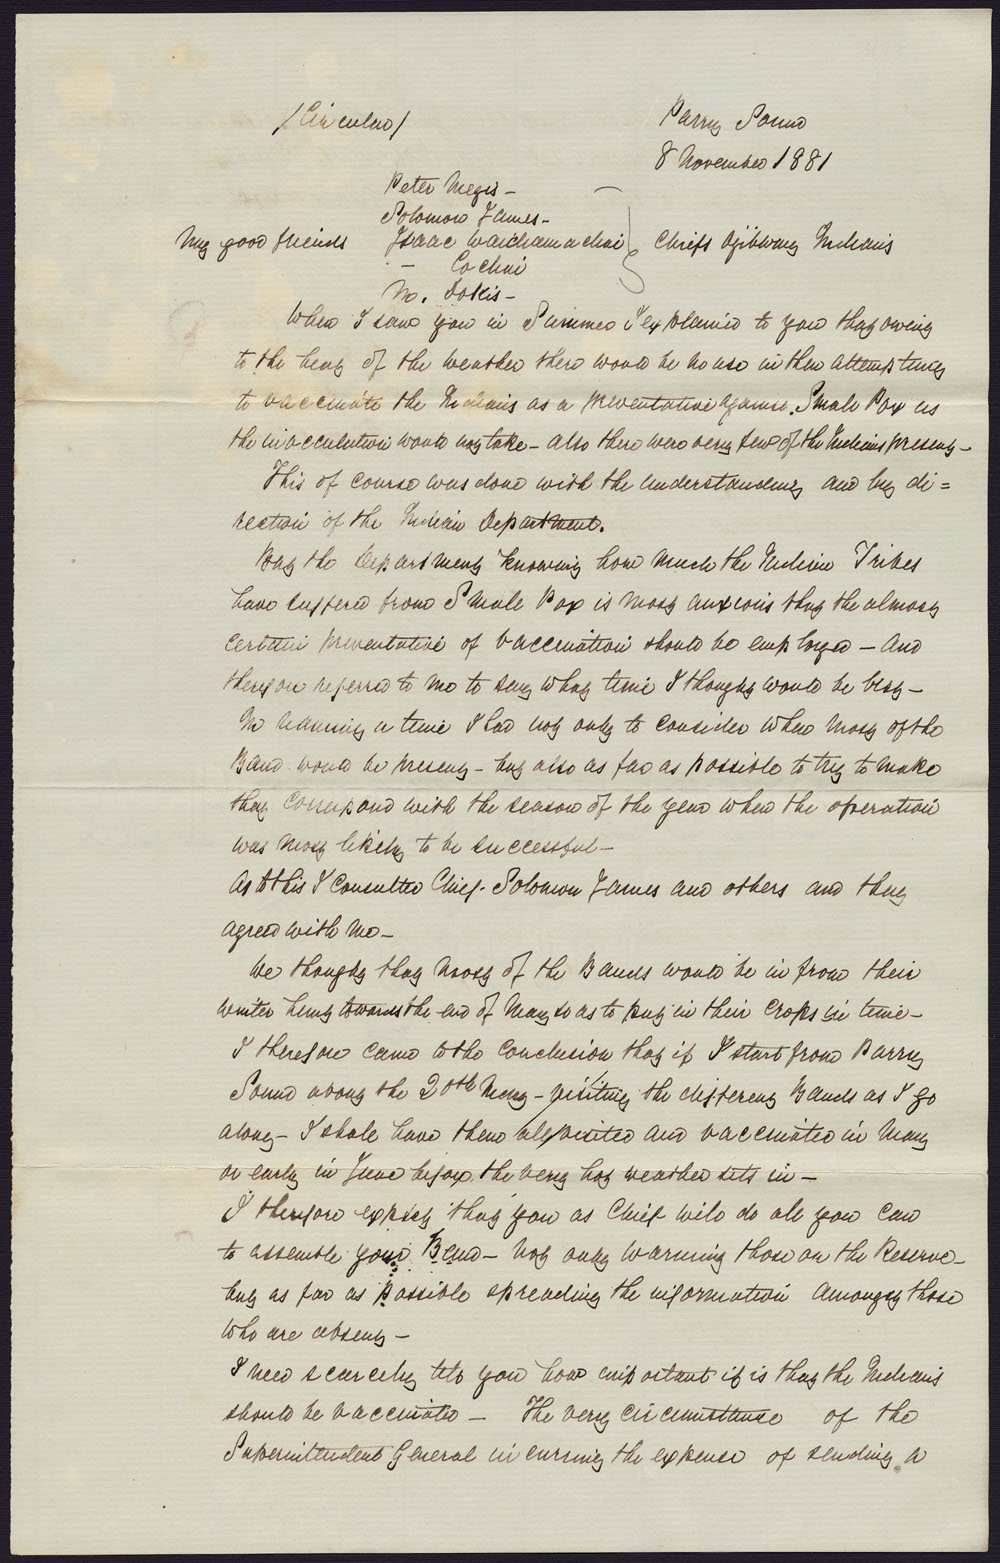 /Circular/
Parry Sound
8 November 1881
Peter Megis -
Solomon James -
My good friends Isaac } Chiefs Ojibway Indians
-
M. Dokis -
When I saw you in Summer I explained to you that owing
to the heat of the weather there would be no use in then attempting
to vaccinate the Indians as a preventative against Small Pox as
the inocculation would not take - also there were very few of the Indians present -
This of course was done with the understanding and by di=
rection of the Indian Department.
But the Department knowing how much the Indian Tribes
have suffered from Small Pox is most anxious that the almost
certain preventative of vaccination should be employed - and
therefore referred to me to say what time I thought would be best -
In naming a time I had not only to consider when most of the
Band would be present - but also as far as possible to try to make
that correspond with the season of the year when the operation
was most likely to be successful -
As to this I consulted Chief Solomon James and others and they
agreed with me -
We thought that most of the Bands would be in from their
winter hunt towards the end of May so as to put in their crops in time -
I therefore came to the conclusion that if I start from Parry
Sound about the 20th May - visiting the different Bands as I go
along - I shall have them all visited and vaccinated in May
or early in June before the very hot weather sets in -
I therefore expect that you as Chief will do all you can
to assemble your Band - not only warning those on the Reserve -
but as far as possible spreading the information amongst those
who are absent -
I need scarcely tell you how important it is that the Indians
should be vaccinated - The very circumstance of the
Superintendent General incurring the expense of sending a